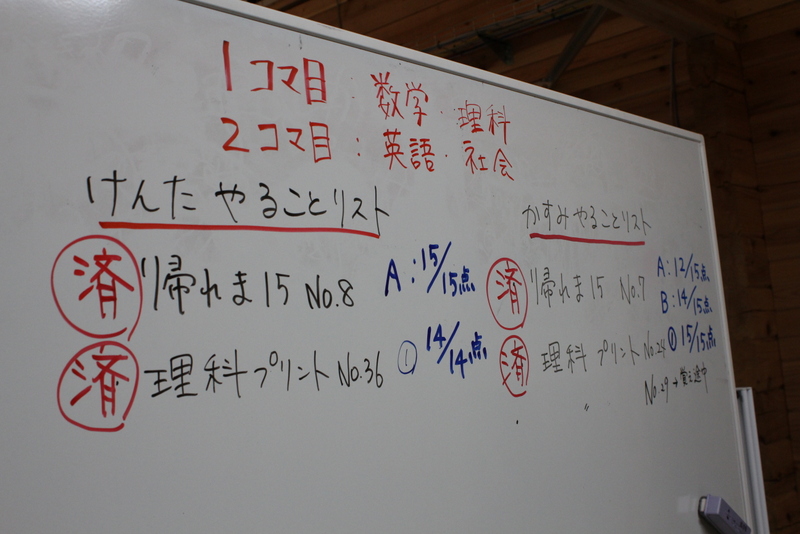 1コマ目：数学・理科
2コマ目：英語・社会
けんた やることリスト
済 帰れま15 No.8 A：15/15点
済 理科プリント No.36 ① 14/14点
かすみ やることリスト
済 帰れま15 No.7 A：12/15点
B：14/15点
済 理科プリント No.24 ① 15/15点
〃 No.29 → 覚え途中